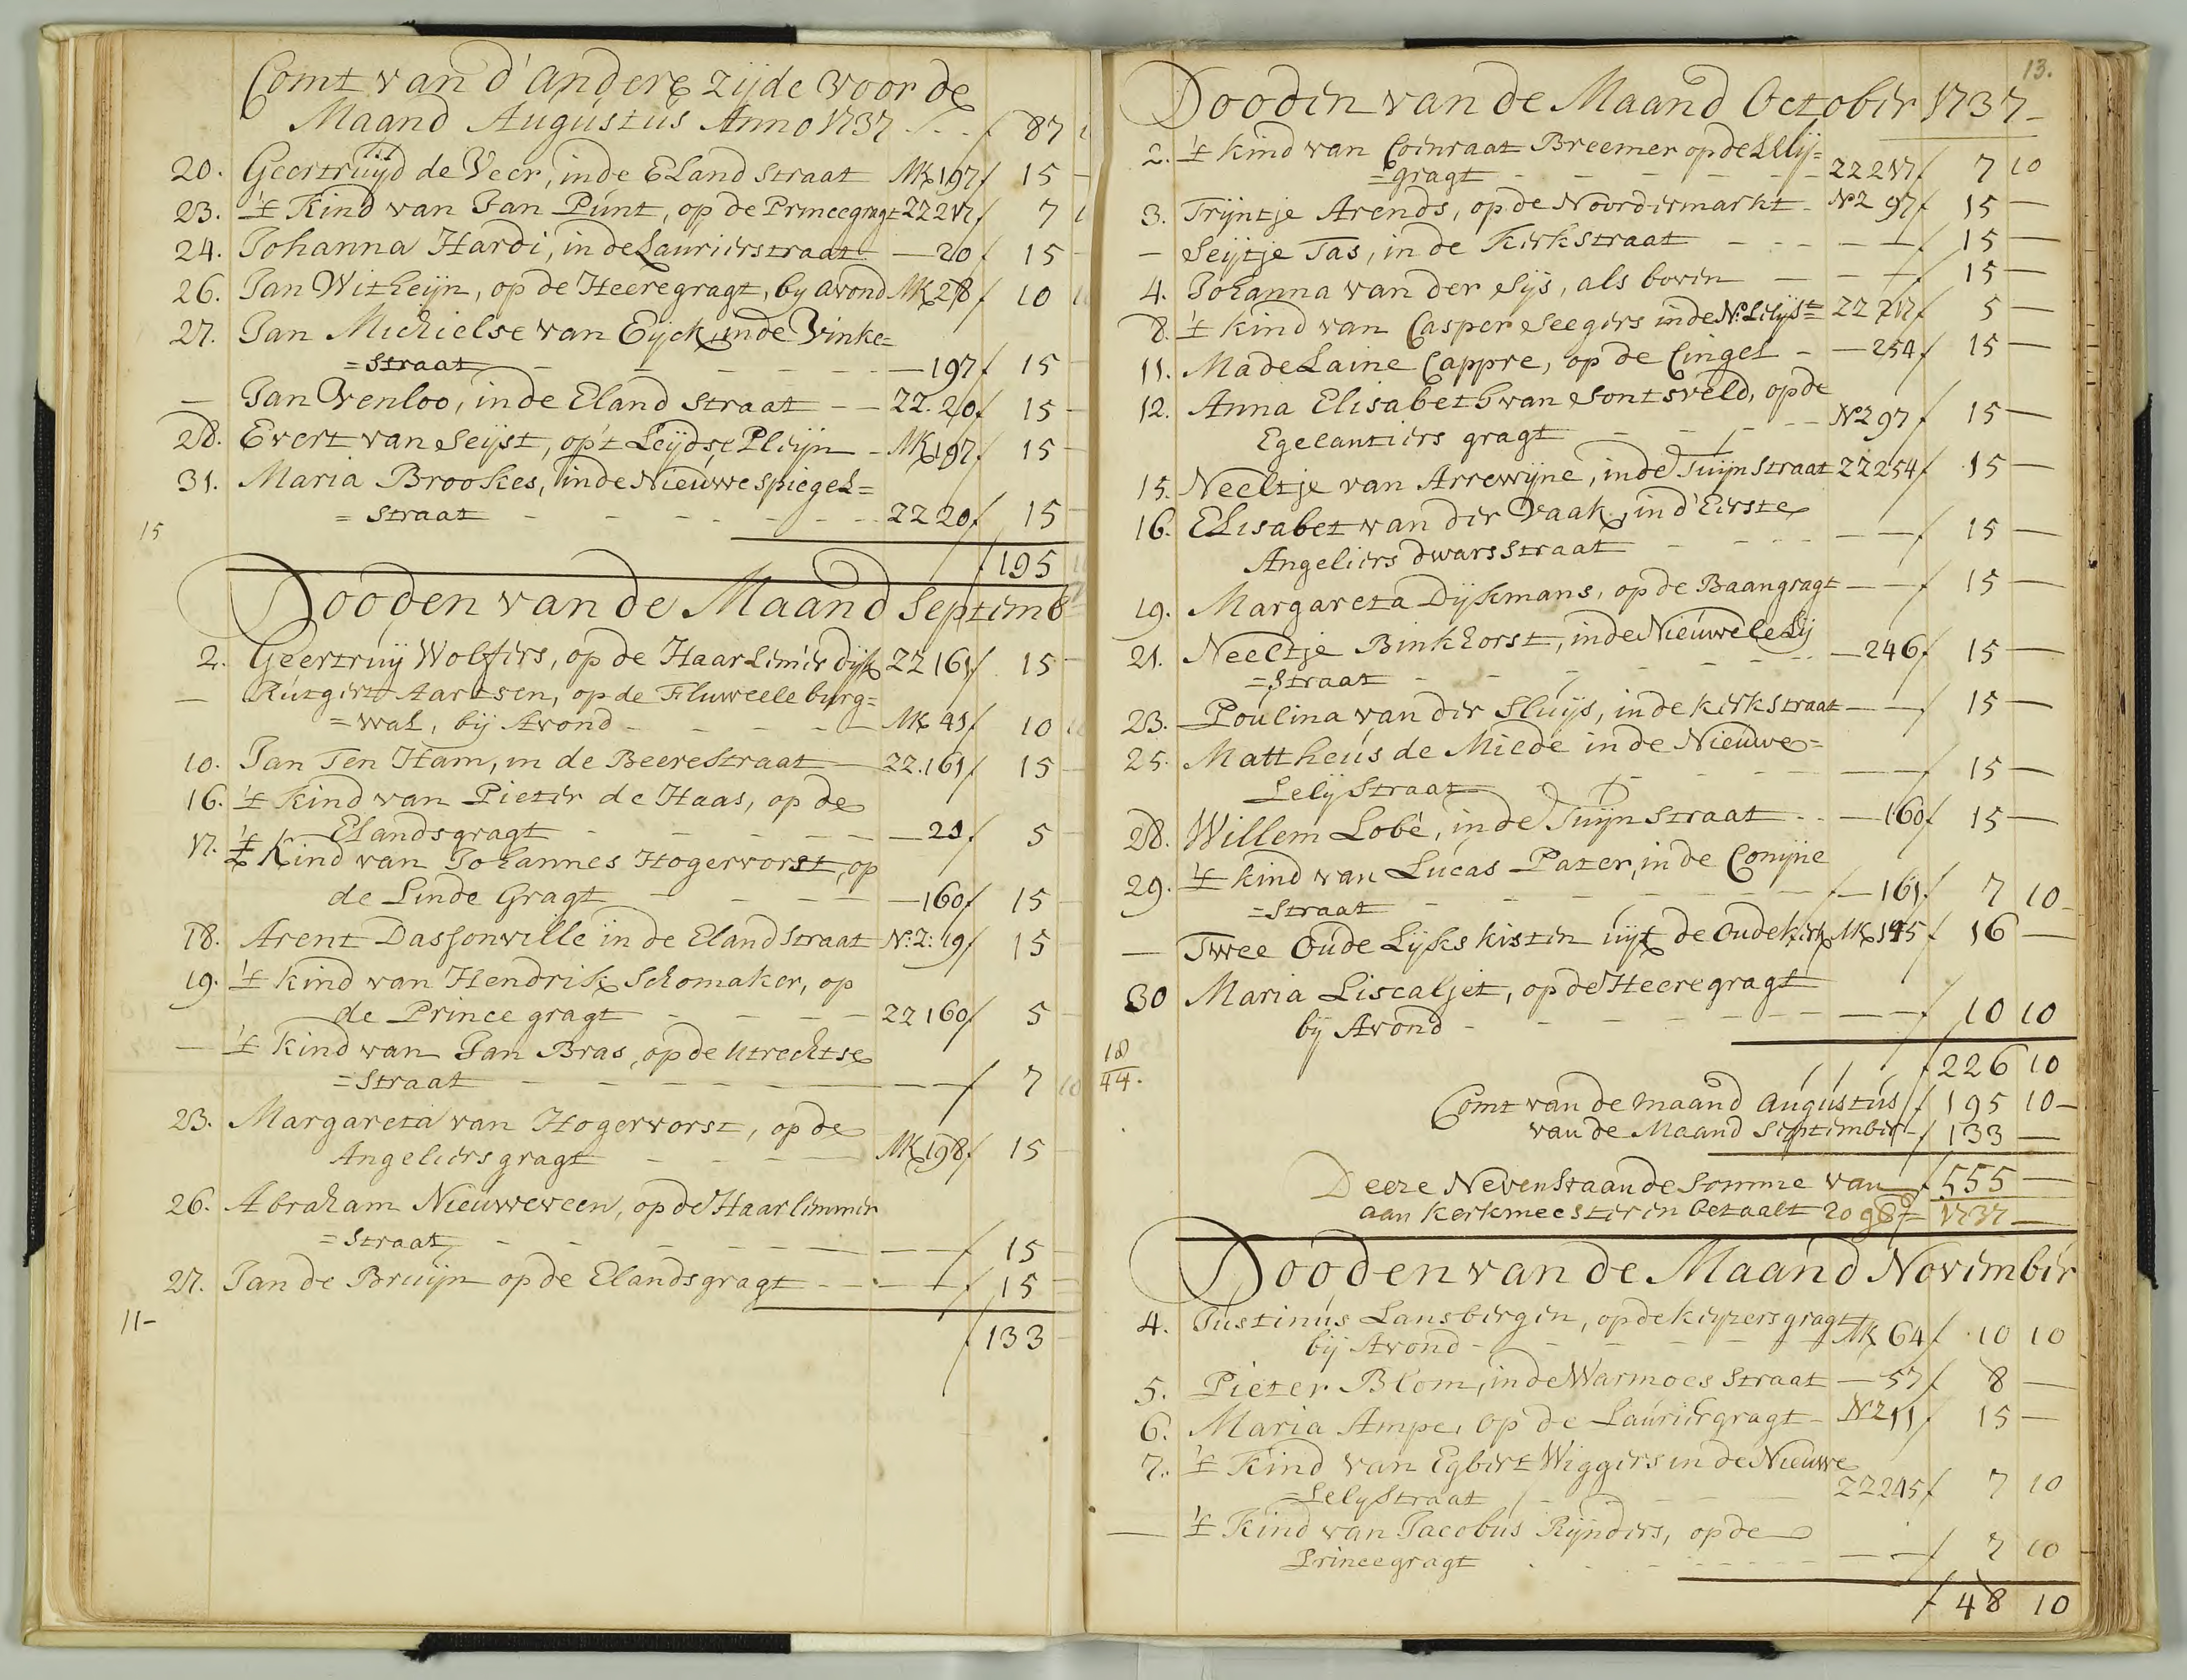 Comt van d'andere zijde voor de
Maand Augustus Anno 1737 . . f 87
20. Geertruijd de Veer, inde Eland straat MK 197 f 15 -
23. 't Kind van Jan Punt, op de Princegragt 22 217 f 7
24. Johanna Hardi, inde Laurierstraat — 20 f 15 -
26. Jan Witheijn, op de Heeregragt, by avond MK 28 f 10
27. Jan Michielse van Eijck, inde Vinke=
=straat — 197 f 15 -
— Jan Venloo, inde Eland straat — 22. 20 f 15 -
28. Evert van Seijst, op't Leijdse Pleijn - MK 197 f 15 -
31. Maria Brookes, inde Nieuwe spiegel=
=straat 22 20 f 15 -
15
f 195
Dooden van de Maand Septemb
2. Geertruij Wolfers, op de Haarlemer dijk 22 161 f 15 -
— Rutgert Aartsen, op de Fluweele burg=
=wal, bij Avond - MK 41 f 10
10. Jan Ten Ham, in de Beerestraat 22.161 f 15 -
16. 't Kind van Pieter de Haas, op de
Elandsgragt — 21 f 5 -
17. 't Kind van Johannes Hogervorst, op
de Linde Gragt — 160 f 15 -
18. Arent Dassonville in de Eland straat N:2: 19 f 15 -
19. 't kind van Hendrik Schomaker, op
de Prince gragt 22 160 f 5 -
— 't kind van Jan Bras, op de Utrechtse
=straat — f 7 10
23. Margareta van Hogervorst, op de
Angeliersgragt MK 198 f 15 -
26. Abraham Nieuweveen, op de Haarlemmer
=straat — f 15 -
27. Jan de Bruijn op de Elandsgragt — f 15 -
11-
f 133 -
13.
Dooden van de Maand October 1737
2. 't kind van Coenraat Breemer op de Lelij=
=gragt - 22 217 f 7 10
3. Trijntje Arends, op de Noordermarkt - N2 97 f 15 —
— Seijtje Tas, in de Kerkstraat — f 15 —
4. Johanna van der Sijs, als boven — f 15 —
8. 't kind van Casper Seegers inde N: Lelijst= 22 217 f 5 —
11. Madelaine Cappre, op de Cingel - — 254 f 15 —
12. Anna Elisabeth van Sontsveld, op de
Egelantiers gragt N2 97 f 15 —
15. Neeltje van Arrewijne, inde Tuijn straat 22 254 f 15 —
16. Elisabet van der Vaak, in d'Eerste
Angeliers dwarsstraat — f 15 —
19. Margareta Dijkmans, op de Baangragt — f 15 —
21. Neeltje Binkhorst, inde Nieuwe Lelij
=straat — 246 f 15 —
23. Poulina van der Sluijs, in de kerkstraat — f 15 —
25. Mattheus de Miede in de Nieuwe=
Lelij straat — f 15 —
28. Willem Lobé, inde Tuijn straat - — 160 f 15 —
29. 't kind van Lucas Pater, in de Conijne
=straat — 161 f 7 10
— Twee Oude Lijks kisten uijt de Oude kerk MK 145 f 16 —
30 Maria Liscaljet, op de Heeregragt
bij Avond - — f 10 10
18
44.
f 226 10
Comt van de maand Augustus f 195 10 —
van de Maand September f 133 —
Deeze Nevenstaande somme van f 555 —
aan kerkmeesteren betaalt 20 9b 1737 —
Dooden van de Maand November
4. Justinus Lansbergen, op de keijzersgragt
bij Avond - MK 64 f 10 10
5. Pieter Blom, inde Warmoes straat — 57 f 8 —
6. Maria Ampe, op de Lauriergragt - N2 11 f 15 —
7. 't Kind van Egbert Wiggers in de Nieuwe
=Lelystraat 22 245 f 7 10
— 't Kind van Jacobus Rijnders, op de
Princegragt — f 7 10
f 48 10